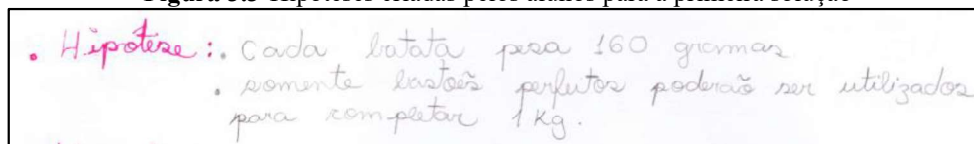 Figura 3.3 Hipóteses criadas pelos alunos para a primeira solução
• Hipótese: • Cada batata pesa 160 gramas
• somente bastões perfeitos poderão ser utilizados
para completar 1 Kg.